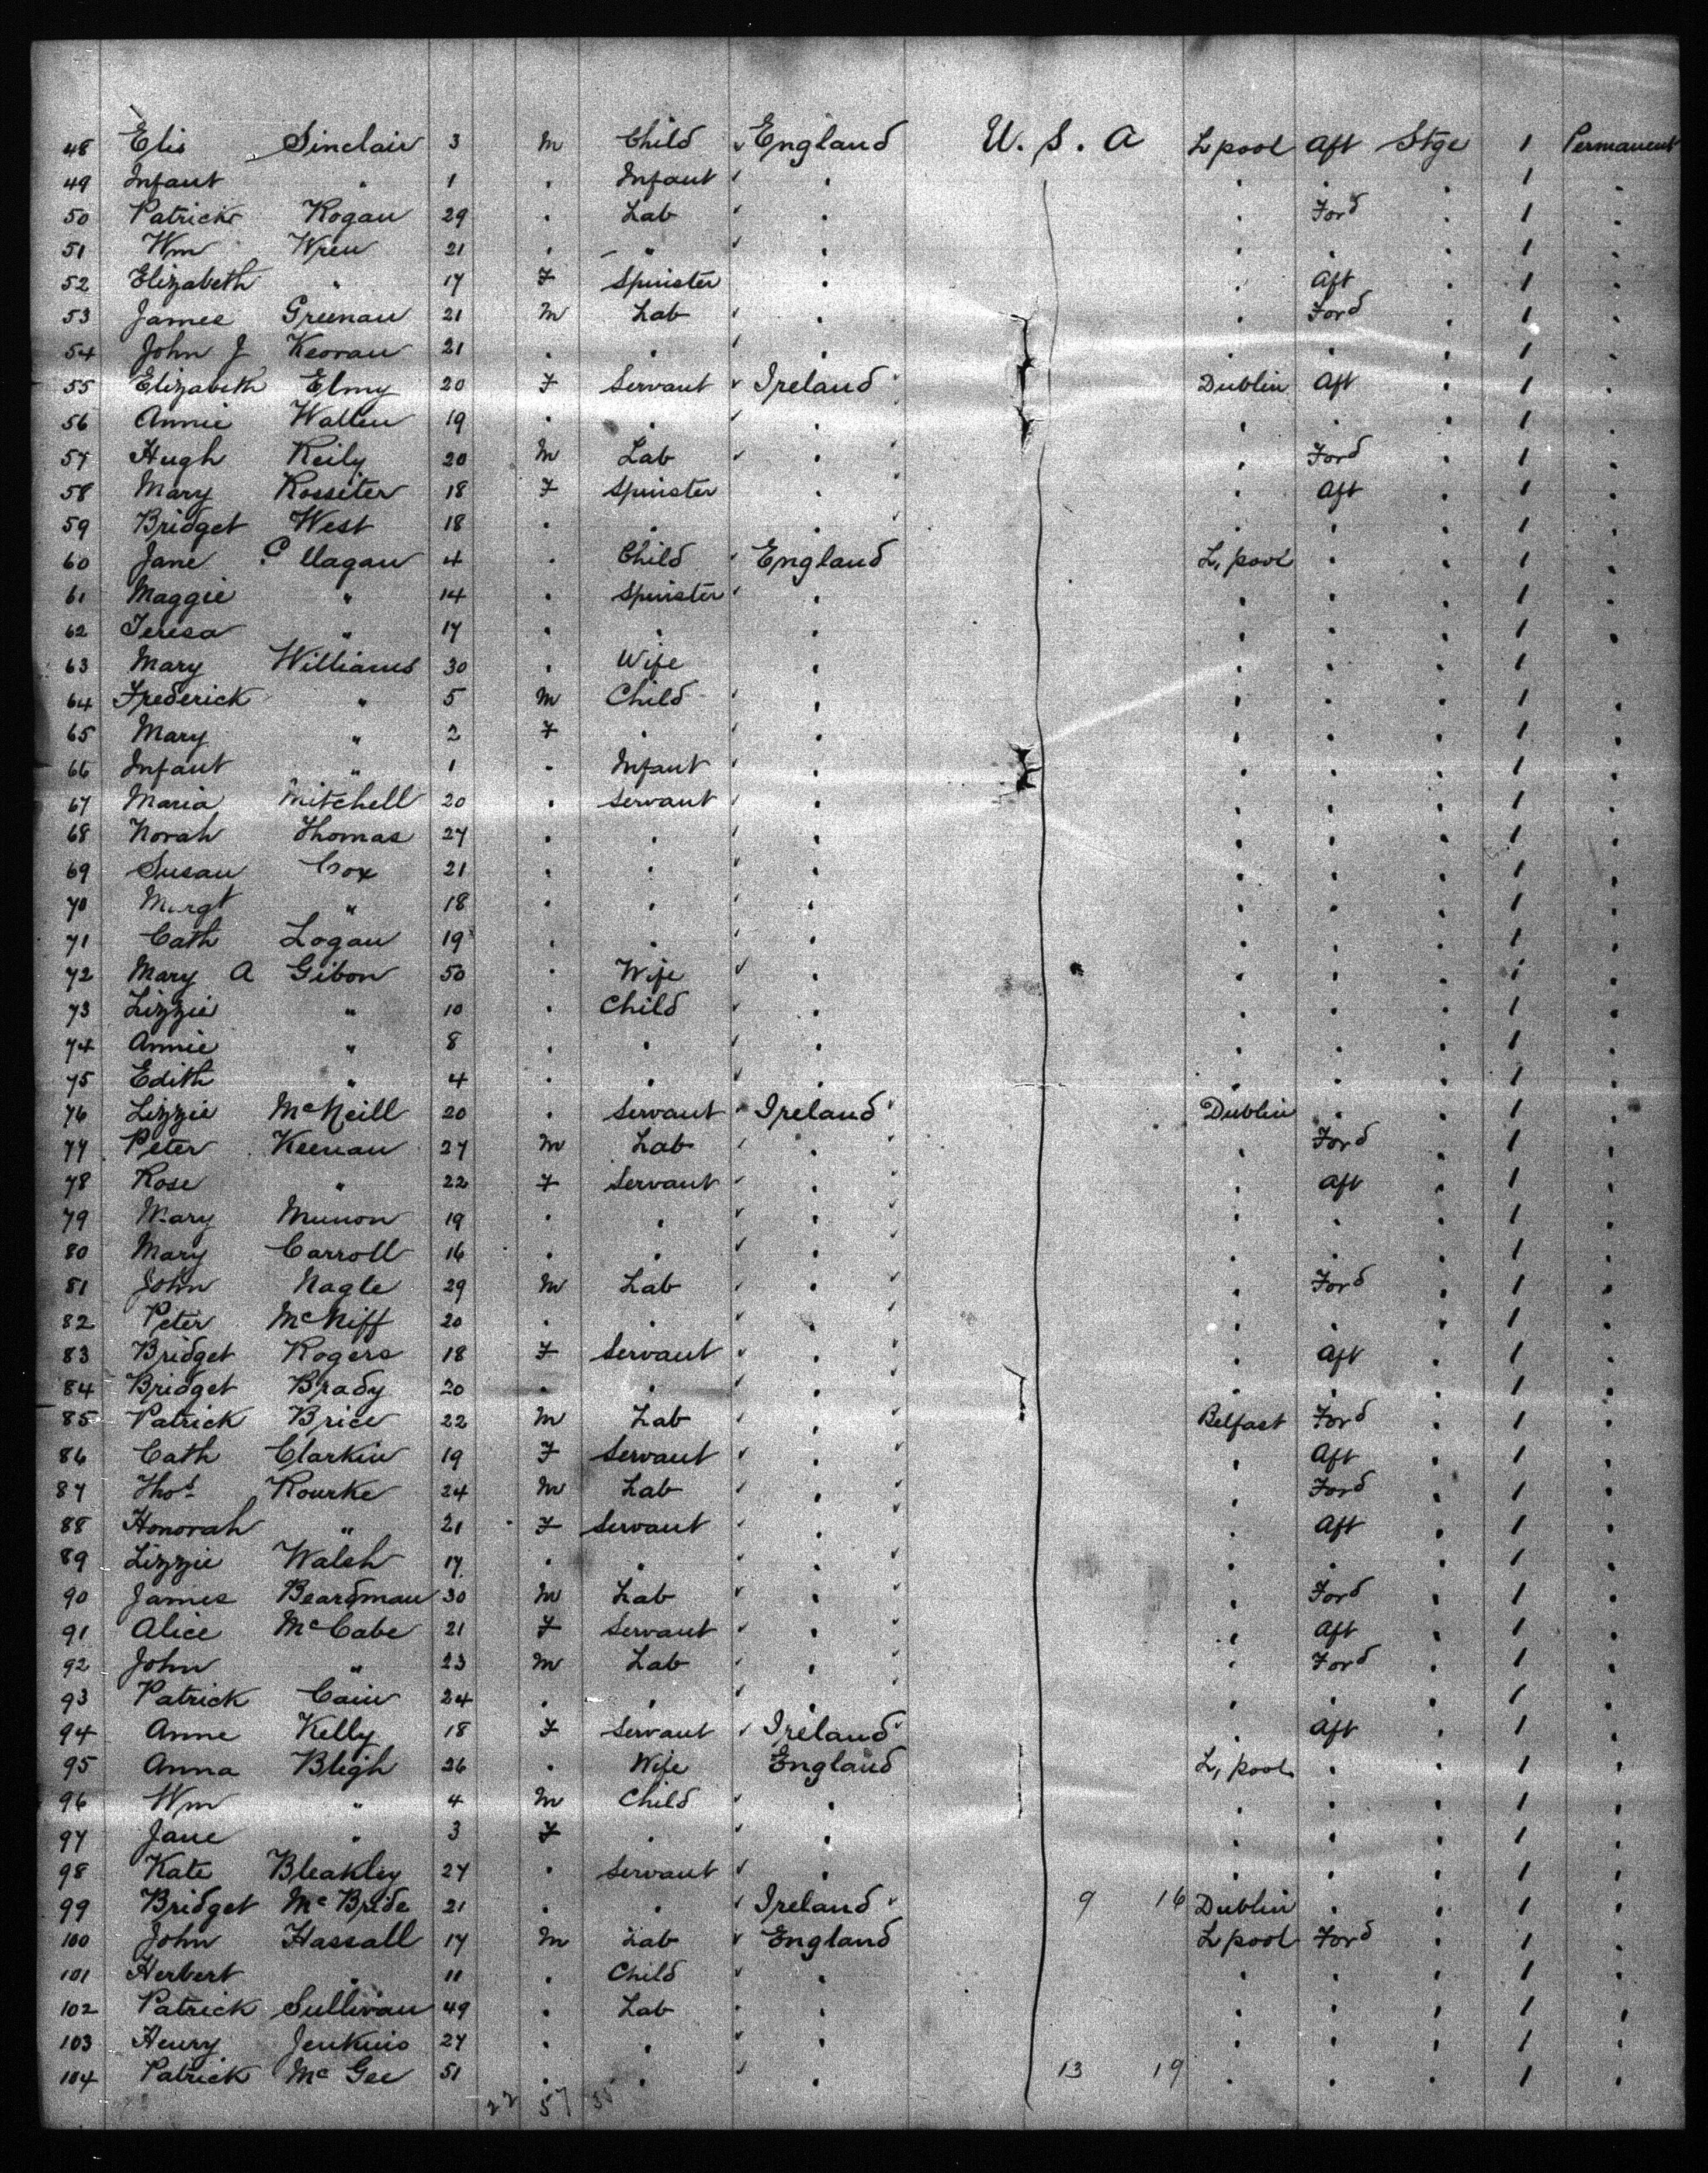 48 Elis Sinclair 3 M Child England U. S. A L pool Aft Stge 1 Permanent
49 Infant " 1 " Infant " " " " 1 "
50 Patrick Kogan 29 " Lab " " Ford " 1 "
51 Wm Wren 21 " " " " " " 1 "
52 Elizabeth " 17 F Spinster " " Aft " 1 "
53 James Greenan 21 M Lab " " Ford " 1 "
54 John J Keoran 21 " " " " " " 1 "
55 Elizabeth Elmy 20 F Servant Ireland Dublin Aft " 1 "
56 Annie Wallen 19 " " " " " " 1 "
57 Hugh Reily 20 M Lab " " Ford " 1 "
58 Mary Rossiter 18 F Spinster " " Aft " 1 "
59 Bridget West 18 " " " " " " 1 "
60 Jane C llagan 4 " Child England L, pool " " 1 "
61 Maggie " 14 " Spinster " " " " 1 "
62 Teresa " 17 " " " " " " 1 "
63 Mary Williams 30 " Wife " " " " 1
64 Frederick " 5 M Child " " " " 1 "
65 Mary " 2 F " " " " " 1 "
66 Infant " 1 " Infant " " " " 1 "
67 Maria Mitchell 20 " Servant " " " " 1 "
68 Norah Thomas 27 " " " " " " 1 "
69 Susan Cox 21 " " " " " " 1 "
70 Margt " 18 " " " " " " 1 "
71 Cath Logan 19 " " " " " " 1 "
72 Mary A Gibon 50 " Wife " " " " 1 "
73 Lizzie " 10 " Child " " " " 1 "
74 Annie " 8 " " " " " " 1 "
75 Edith " 4 " " " " " " 1 "
76 Lizzie McNeill 20 " Servant Ireland Dublin " " 1 "
77 Peter Keenan 27 M Lab " " Ford " 1 "
78 Rose " 22 F Servant " " Aft " 1 "
79 Mary Munon 19 " " " " " " 1 "
80 Mary Carroll 16 " " " " " " 1 "
81 John Nagle 29 M Lab " " Ford " 1 "
82 Peter McNiff 20 " " " " " " 1 "
83 Bridget Rogers 18 F Servant " " Aft " 1 "
84 Bridget Brady 20 " " " " " " 1 "
85 Patrick Brice 22 M Lab " Belfast Ford " 1 "
86 Cath Clarkin 19 F Servant " " Aft " 1 "
87 Thos Rourke 24 M Lab " " Ford " 1 "
88 Honorah " 21 F Servant " " Aft " 1 "
89 Lizzie Walsh 17 " " " " " " 1 "
90 James Beardman 30 M Lab " " Ford " 1 "
91 Alice McCabe 21 F Servant " " Aft " 1 "
92 John " 23 M Lab " " Ford " 1 "
93 Patrick Cain 24 " " " " " " 1 "
94 Anne Kelly 18 F Servant Ireland " Aft " 1 "
95 Anna Bligh 26 " Wife England L, pool " " 1 "
96 Wm " 4 M Child " " " " 1 "
97 Jane " 3 F " " " " " 1 "
98 Kate Bleakley 27 " Servant " " " " 1 "
99 Bridget McBride 21 " " Ireland 9 16 Dublin " " 1 "
100 John Hassall 17 M Lab England L pool Ford " 1 "
101 Herbert " 11 " Child " " " " 1 "
102 Patrick Sullivan 49 " Lab " " " " 1 "
103 Henry Jenkins 27 " " " " " " 1 "
104 Patrick McGee 51 " " " 13 19 " " " 1 "
22 57 35